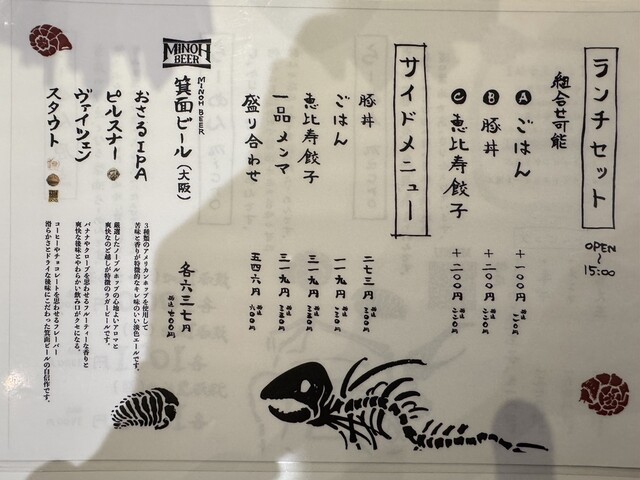 ランチセット
OPEN
～
15:00
組合せ可能
A ごはん +一〇〇円 税込 一一〇円
B 豚丼 +二〇〇円 税込 二二〇円
C 恵比寿餃子 +二〇〇円 税込 二二〇円
サイドメニュー
豚丼 二七三円 税込 三〇〇円
ごはん 一一九円 税込 一三〇円
恵比寿餃子 三一九円 税込 三五〇円
一品メンマ 三一九円 税込 三五〇円
盛り合わせ 五四六円 税込 六〇〇円
MINOH
BEER
MINOH BEER
箕面ビール(大阪) 各六三七円 税込 七〇〇円
おさるIPA
3種類のアメリカンホップを使用して
苦味と香りが特徴的なキレ味のいい淡色エールです。
ピルスナー
厳選したノーブルホップの心地よいアロマと
爽快なのど越しが特徴のラガービールです。
ヴァイツェン
バナナやクローブを思わせるフルーティーな香りと
爽快な後味とやわらかい飲み口がクセになる。
スタウト
コーヒーやチョコレートを思わせるフレーバー
滑らかさとドライな後味にこだわった箕面ビールの自信作です。